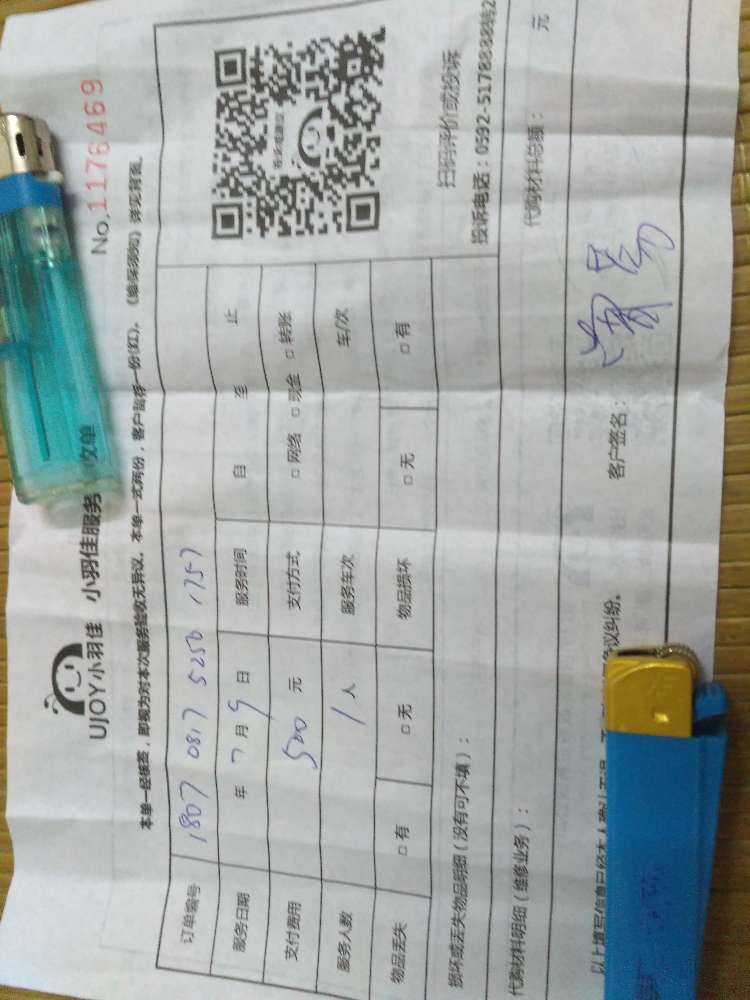 No.1176469
UJOY小羽佳 小羽佳服务 收单
本单一经核签，即视为对本次服务验收无异议。本单一式两份，客户留存一份(红)。《维保须知》详见背面。
订单编号 1807 0817 5250 1757
服务日期 年 7 月 9 日 服务时间 自 至 止
支付费用 500 元 支付方式 □ 网络 □ 现金 □ 转账
服务人数 1 人 服务车次 车/次
物品丢失 □ 有 □ 无 物品损坏 □ 无 □ 有
扫码评价或投诉
投诉电话：0592-5178888转2
损坏或丢失物品明细（没有可不填）：
代购材料明细（维修业务）： 代购材料总额： 元
以上填写信息已经本人确认无误， 争议纠纷。
客户签名：